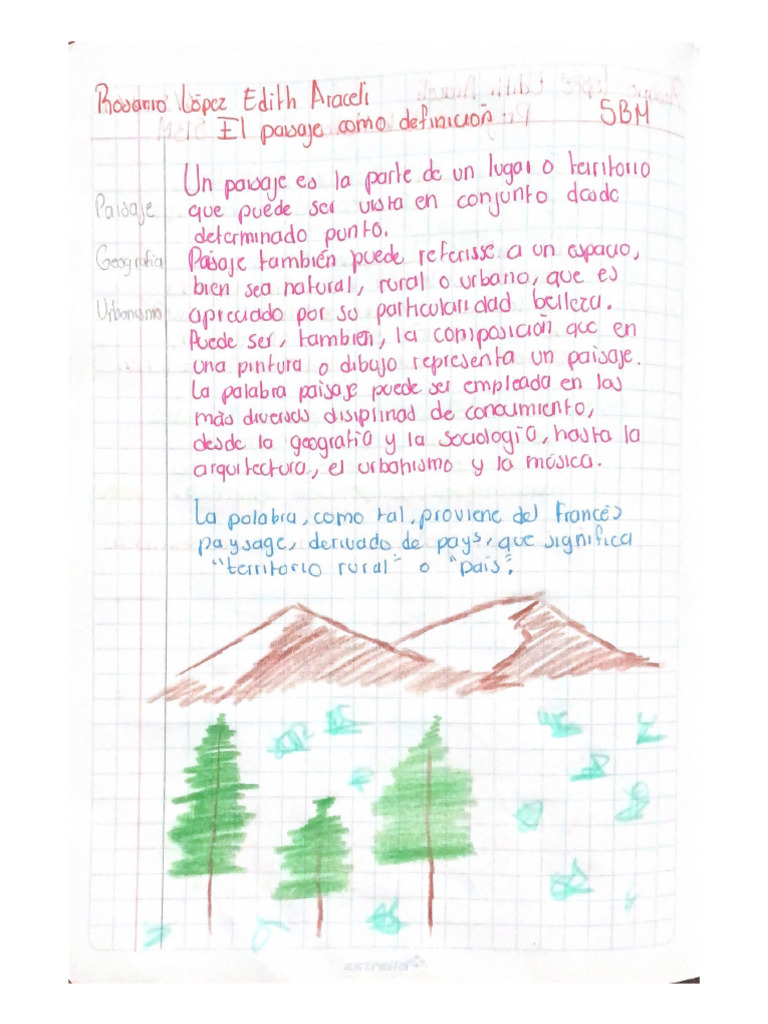 Rosario López Edith Araceli
El paisaje como definición
5BM
Un paisaje es la parte de un lugar o territorio
Paisaje
que puede ser vista en conjunto desde
determinado punto.
Geografía
Paisaje también puede referisse a un espacio,
bien sea natural, rural o urbano, que es
Urbanismo
apreciado por su particularidad belleza.
Puede ser, también, la composición que en
una pintura o dibujo representa un paisaje.
La palabra paisaje puede ser empleada en las
más diversas disiplinas de conocimiento,
desde la geografía y la sociología, hasta la
arquitectura, el urbanismo y la música.
La palabra, como tal, proviene del Francés
paysage, derivado de pays, que significa
"territorio rural" o "país".
estrella